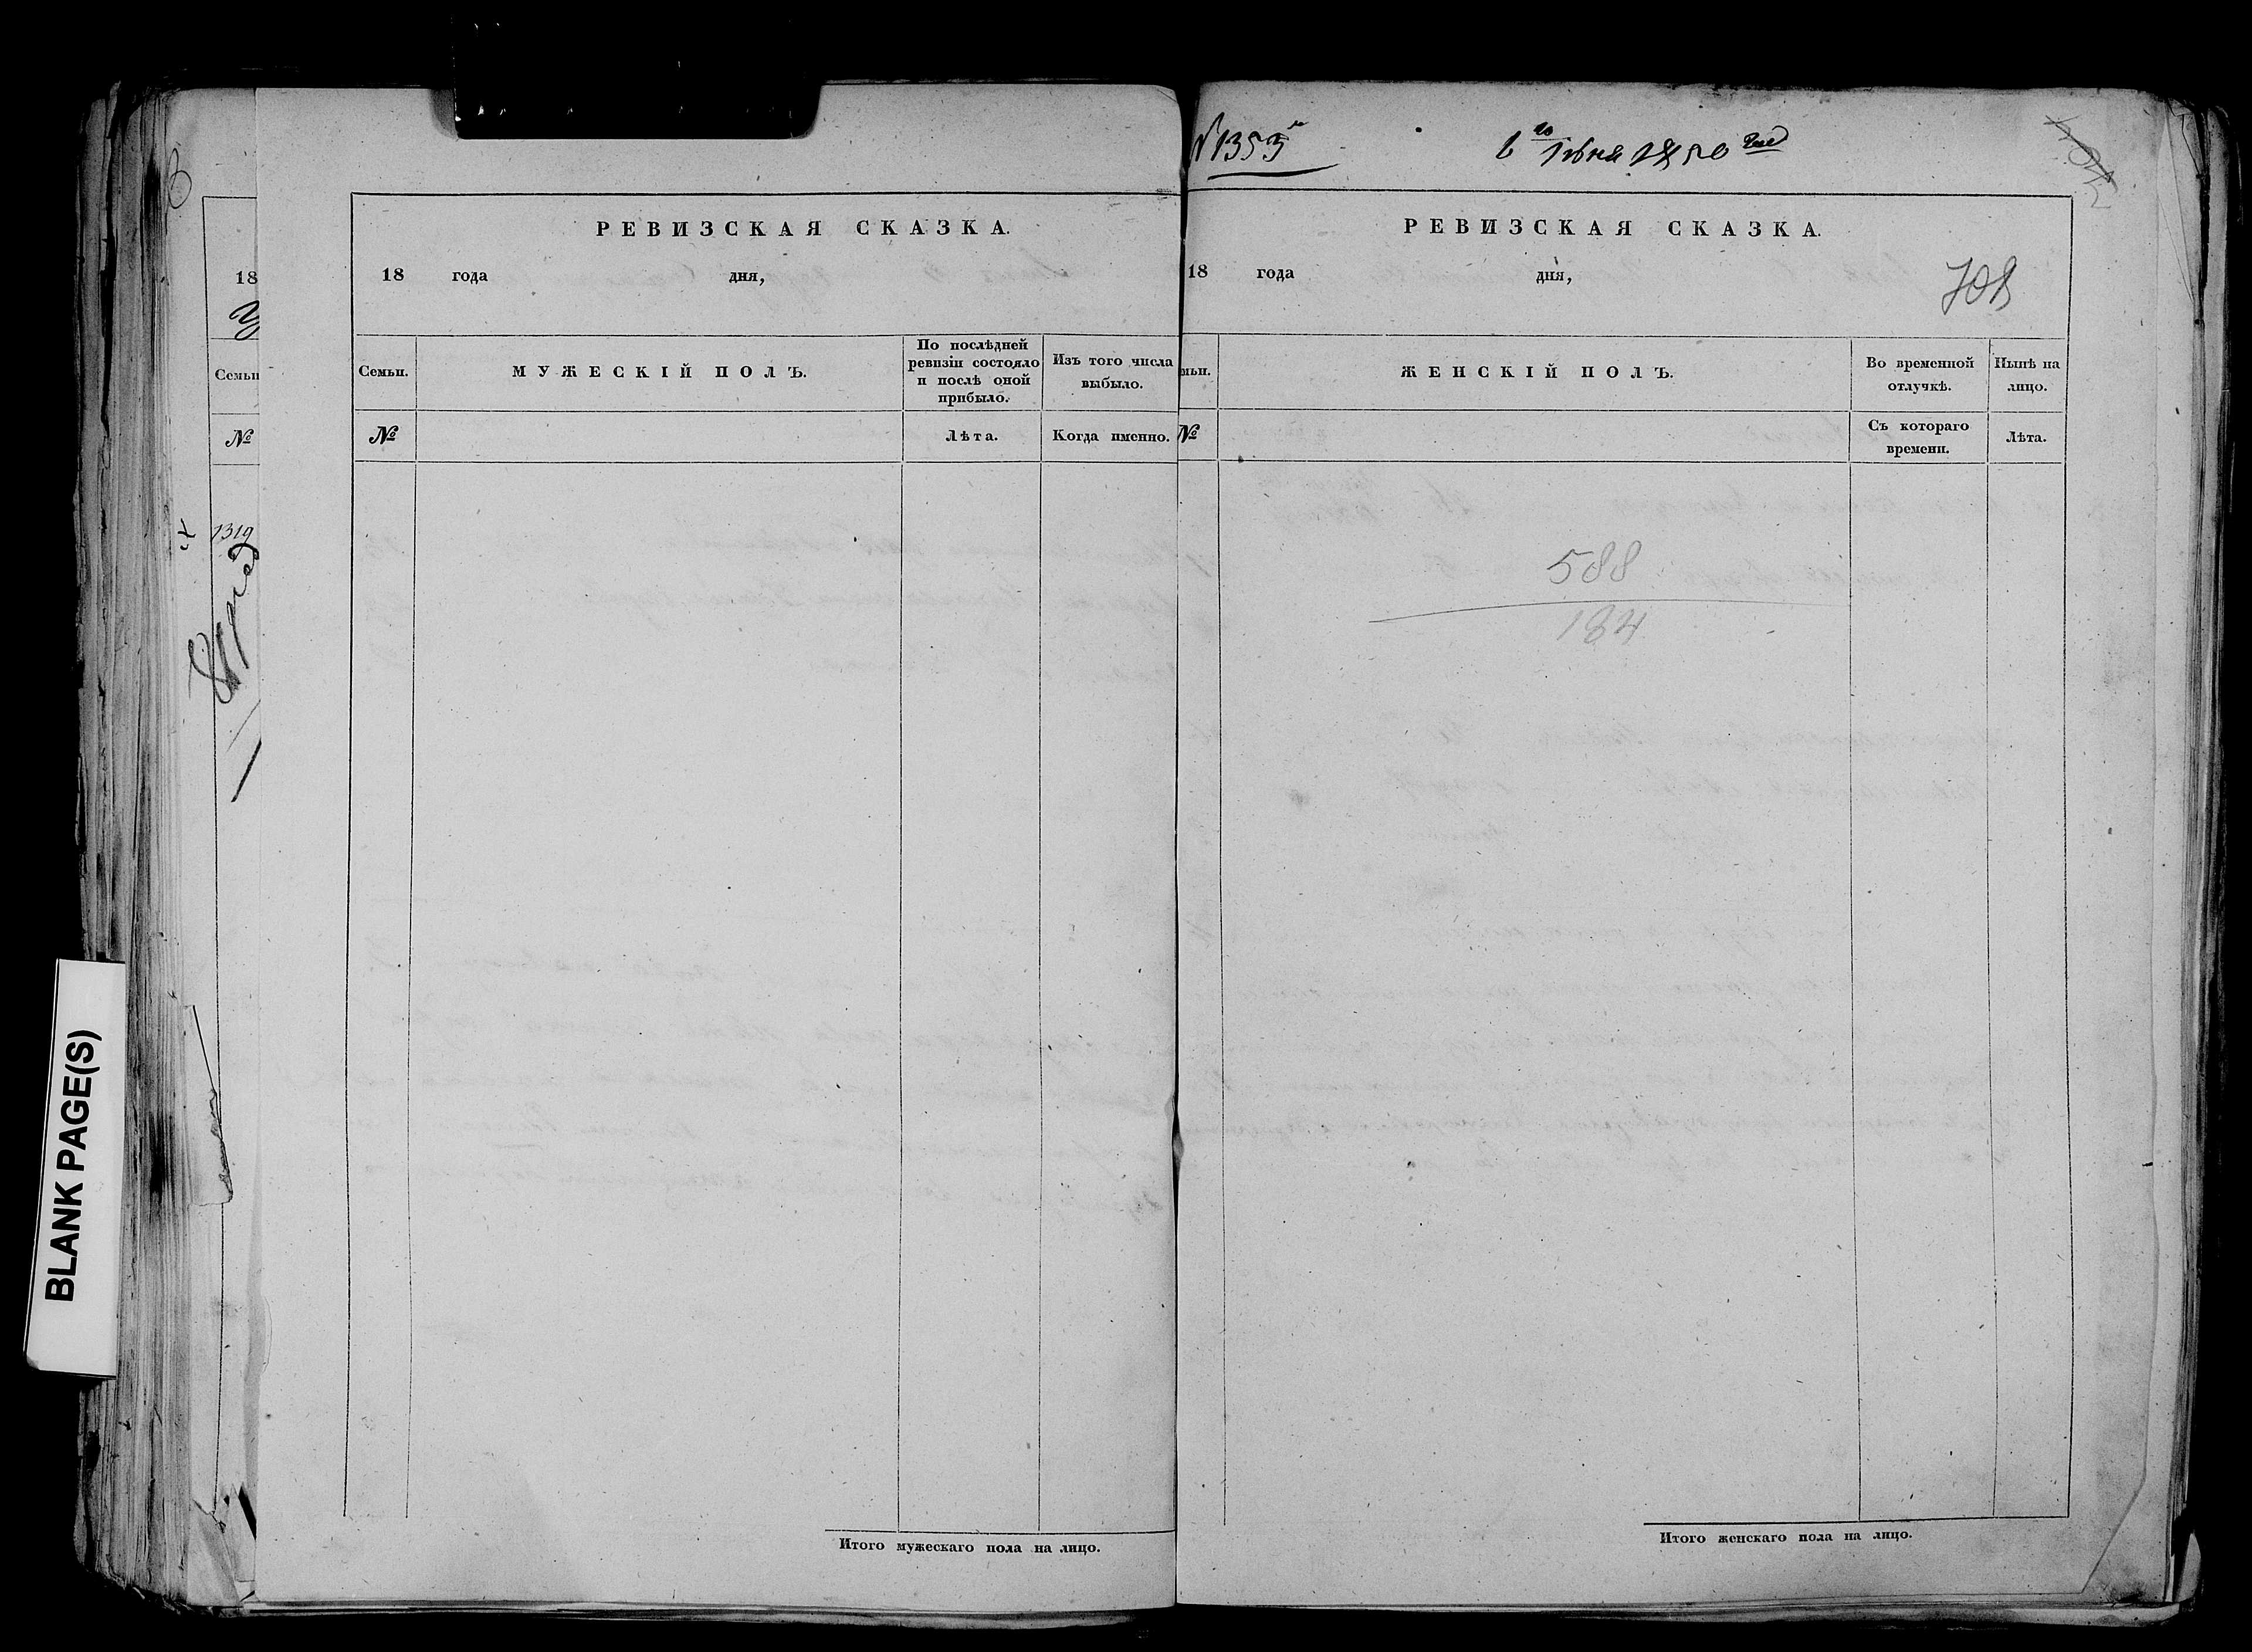 BLANK PAGE(S)
18
Семьи
№
1319
РЕВИЗСКАЯ СКАЗКА.
18 года дня,
Семьи.
МУЖЕСКІЙ ПОЛЪ.
По послѣдней
ревизіи состояло
и послѣ оной
прибыло.
Изъ того числа
выбыло.
№
Лѣта.
Когда именно.
Итого мужескаго пола на лицо.
№ 1353
Іюня 1850
РЕВИЗСКАЯ СКАЗКА.
18 года дня,
708
мьи.
ЖЕНСКІЙ ПОЛЪ.
Во временной
отлучкѣ.
Нынѣ на
лицо.
№
Съ котораго
времени.
Лѣта.
588
184
Итого женскаго пола на лицо.